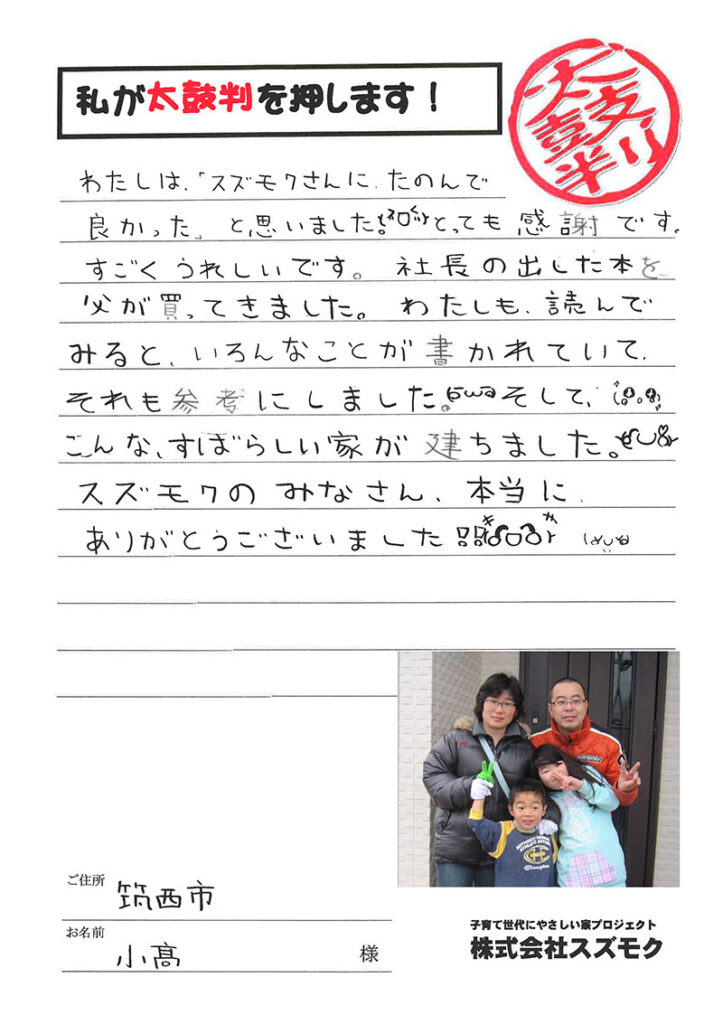 私が太鼓判を押します！
太鼓判
わたしは、「スズモクさんに、たのんで
良かった」と思いました。とっても感謝です。
すごくうれしいです。社長の出した本を
父が買ってきました。わたしも、読んで
みると、いろんなことが書かれていて、
それも参考にしました。そして、
こんな、すばらしい家が建ちました。
スズモクのみなさん、本当に、
ありがとうございました
ご住所 筑西市
お名前 小髙 様
子育て世代にやさしい家プロジェクト
株式会社スズモク